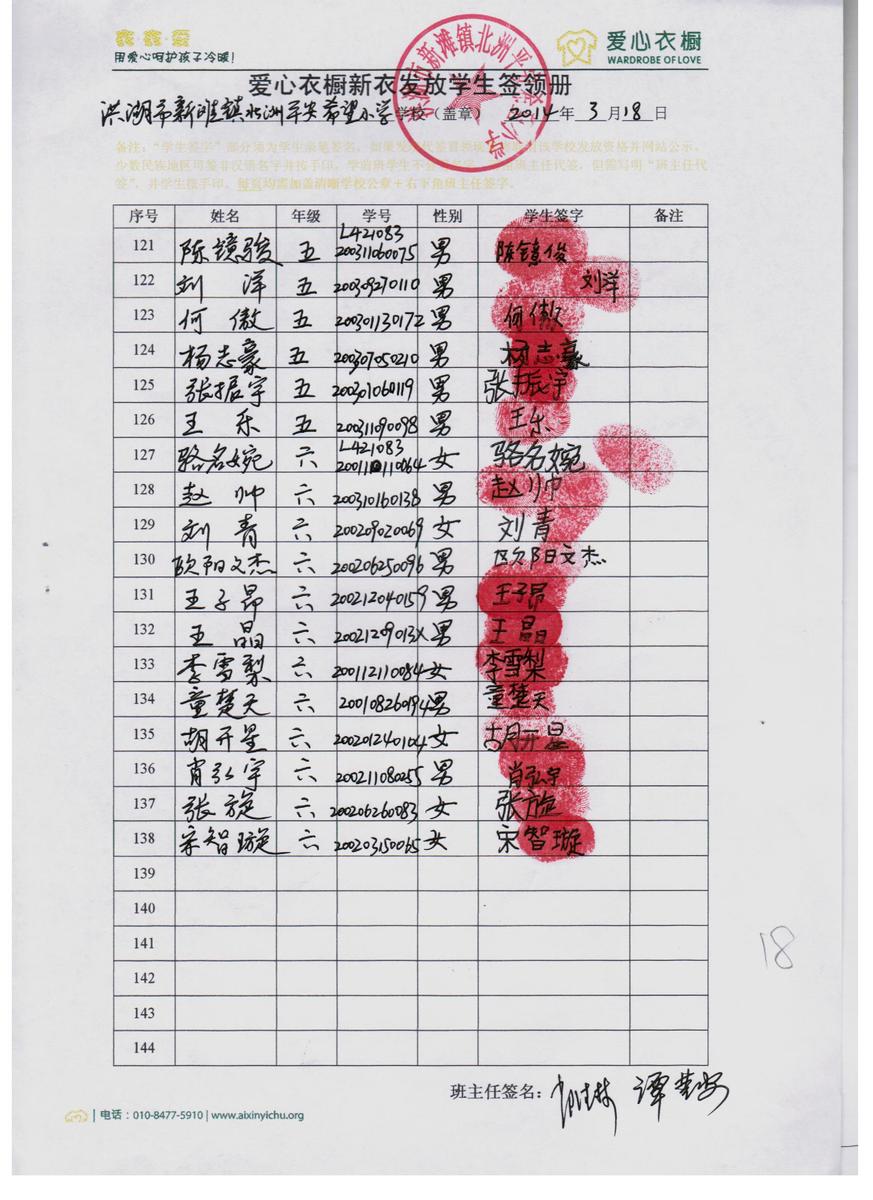 鑫鑫·爱
用爱心呵护孩子冷暖!
爱心衣橱
WARDROBE OF LOVE
爱心衣橱新衣发放学生签领册
洪湖市新滩镇北洲平安希望小学学校（盖章） 2014年 3月18日
备注：“学生签字”部分须为学生亲笔签名，如果发
少数民族地区可签非汉语名字并按手印。学前班学生不会 班主任代签，但需写明“班主任代
签”，并学生按手印。每页均需加盖清晰学校公章+右下角班主任签字。
序号 姓名 年级 学号 性别 学生签字 备注
121 陈镜骏 五 L421083 200311060075 男 陈镜俊
122 刘洋 五 200309270110 男 刘洋
123 何傲 五 200301130172 男 何傲
124 杨志豪 五 200307050210 男 杨志豪
125 张振宇 五 200301060119 男 张振宇
126 王乐 五 200311090098 男 王乐
127 骆名婉 六 L421083 女 骆名婉
128 赵帅 六 200310160138 男 赵帅
129 刘青 六 200209020069 女 刘青
130 欧阳文杰 六 200206250096 男 欧阳文杰
131 王子昂 六 200212040159 男 王子昂
132 王晶 六 20021209013X 男 王晶
133 李雪梨 六 200112110084 女 李雪梨
134 童楚天 六 200108260194 男 童楚天
135 胡开星 六 200201240104 女 胡开星
136 肖弘宇 六 200211080255 男 肖弘宇
137 张旋 六 200206260083 女 张旋
138 宋智璇 六 200203150065 女 宋智璇
139
140
141
142
143
144
18
班主任签名：
电话：010-8477-5910 | www.aixinyichu.org